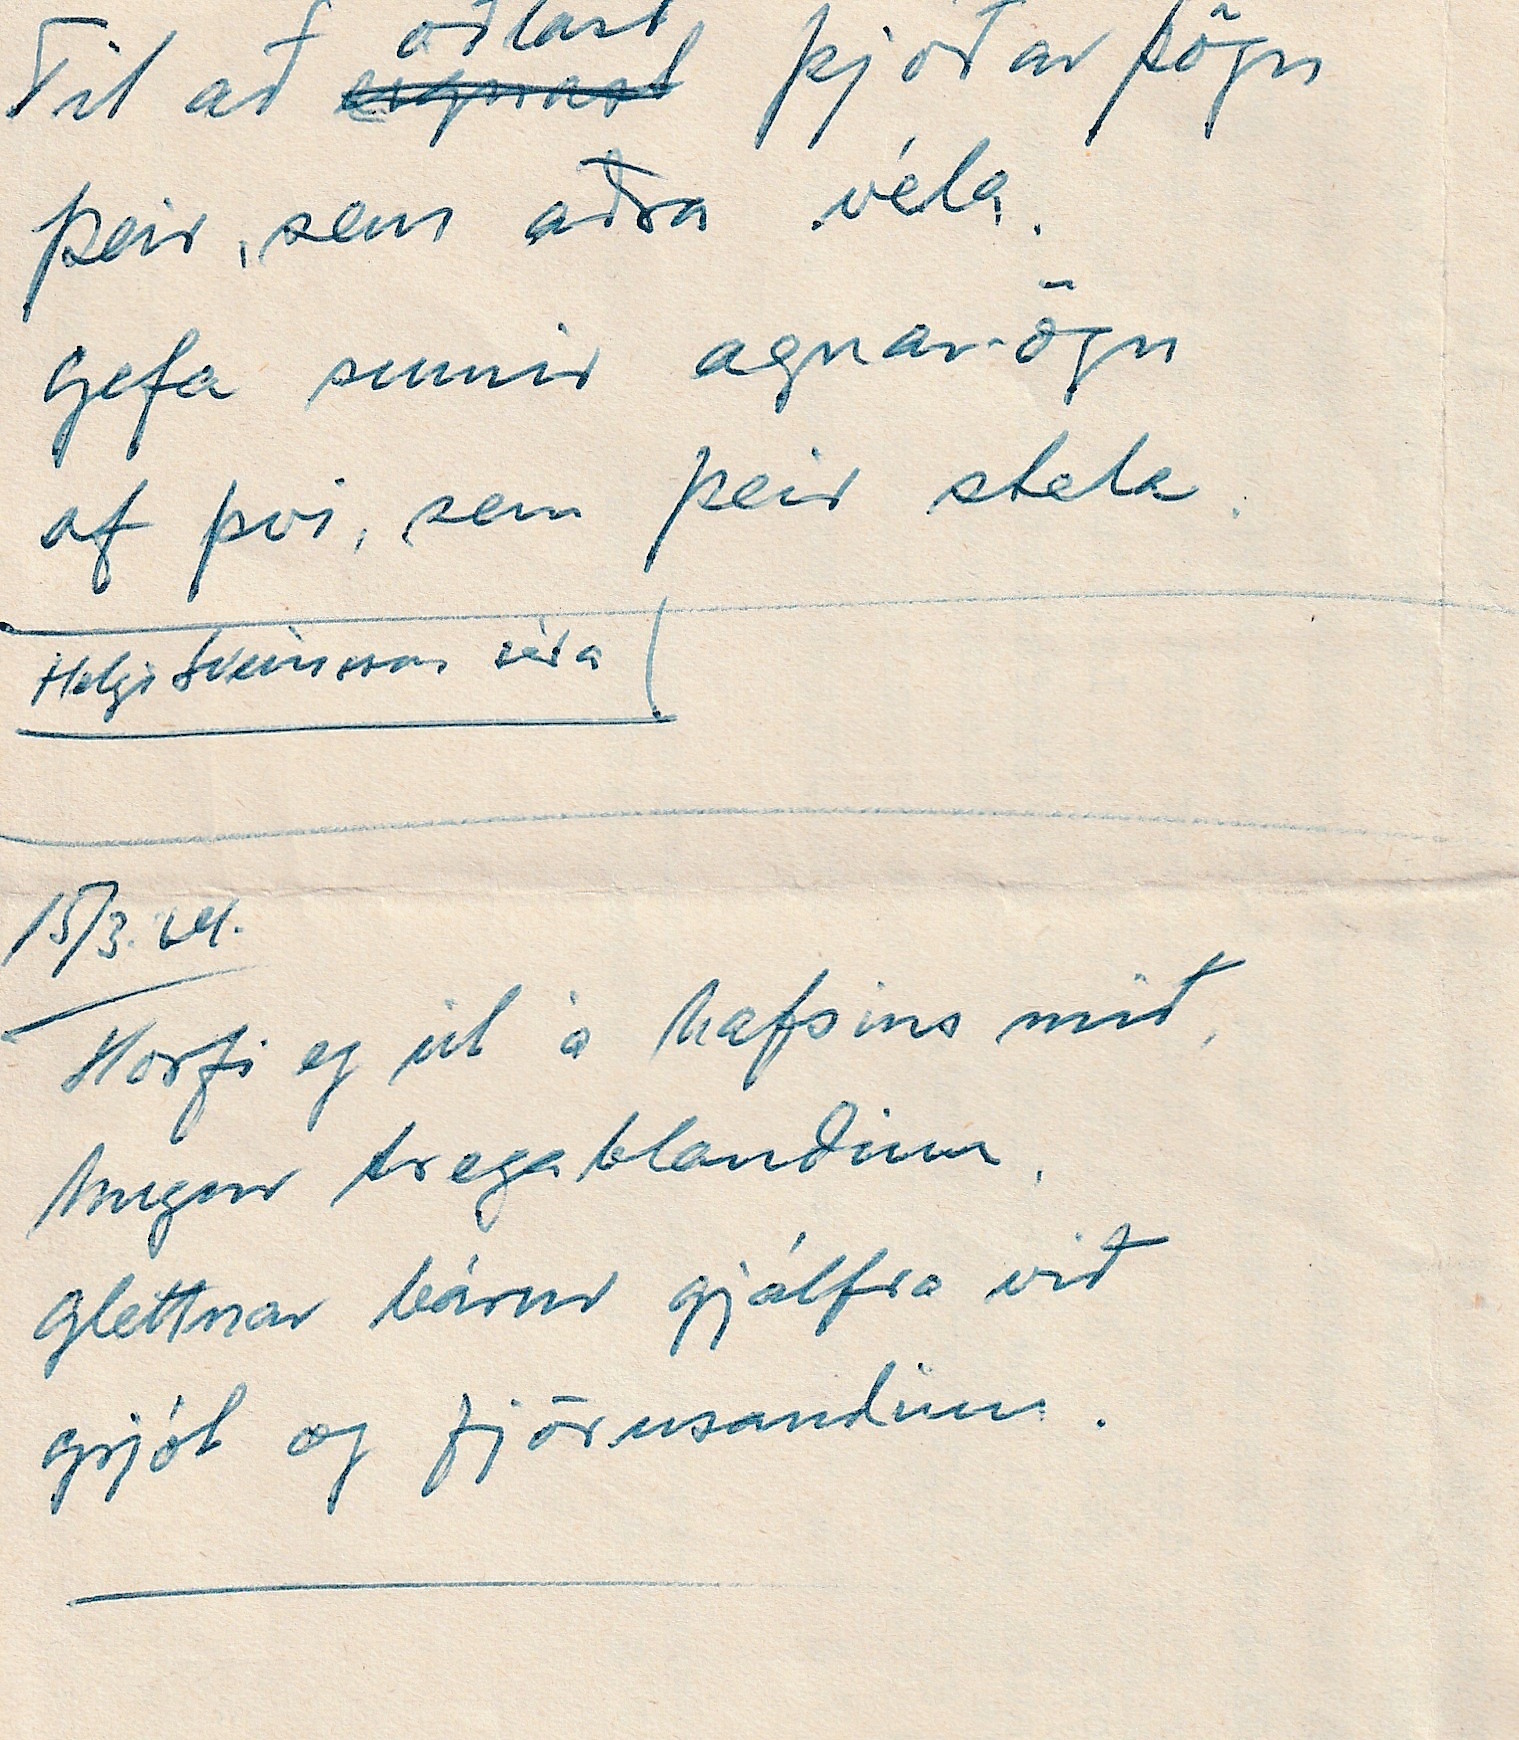 öðlast
Til að eignast þjóðar þögn
þeir, sem aðra véla.
Gefa sumir agnar-ögn
af því, sem þeir stela.
Helgi Sveinsson séra
15/3. '64.
Horfi eg út á hafsins mið,
hugur tregablandinn,
Glettnar bárur gjálfra við
grjót og fjörusandinn.